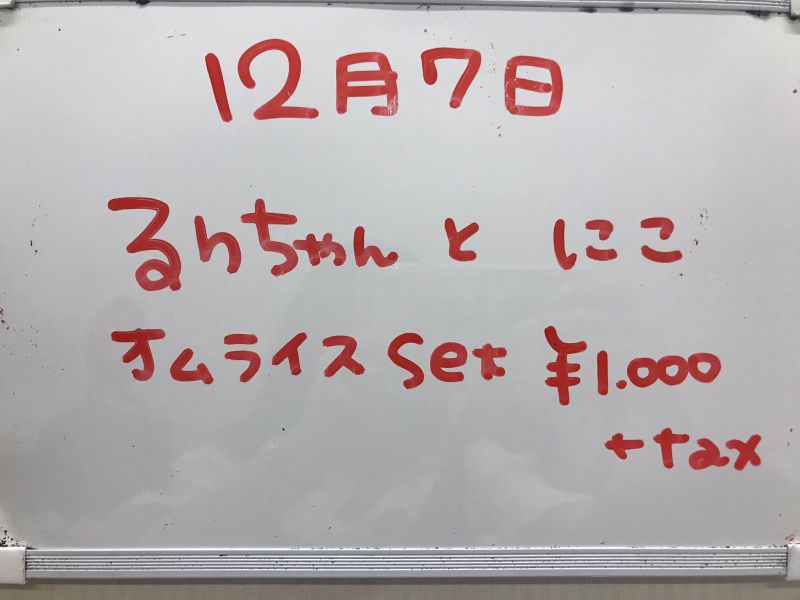 12月7日
るりちゃん と にこ
オムライスset ¥1.000
+tax